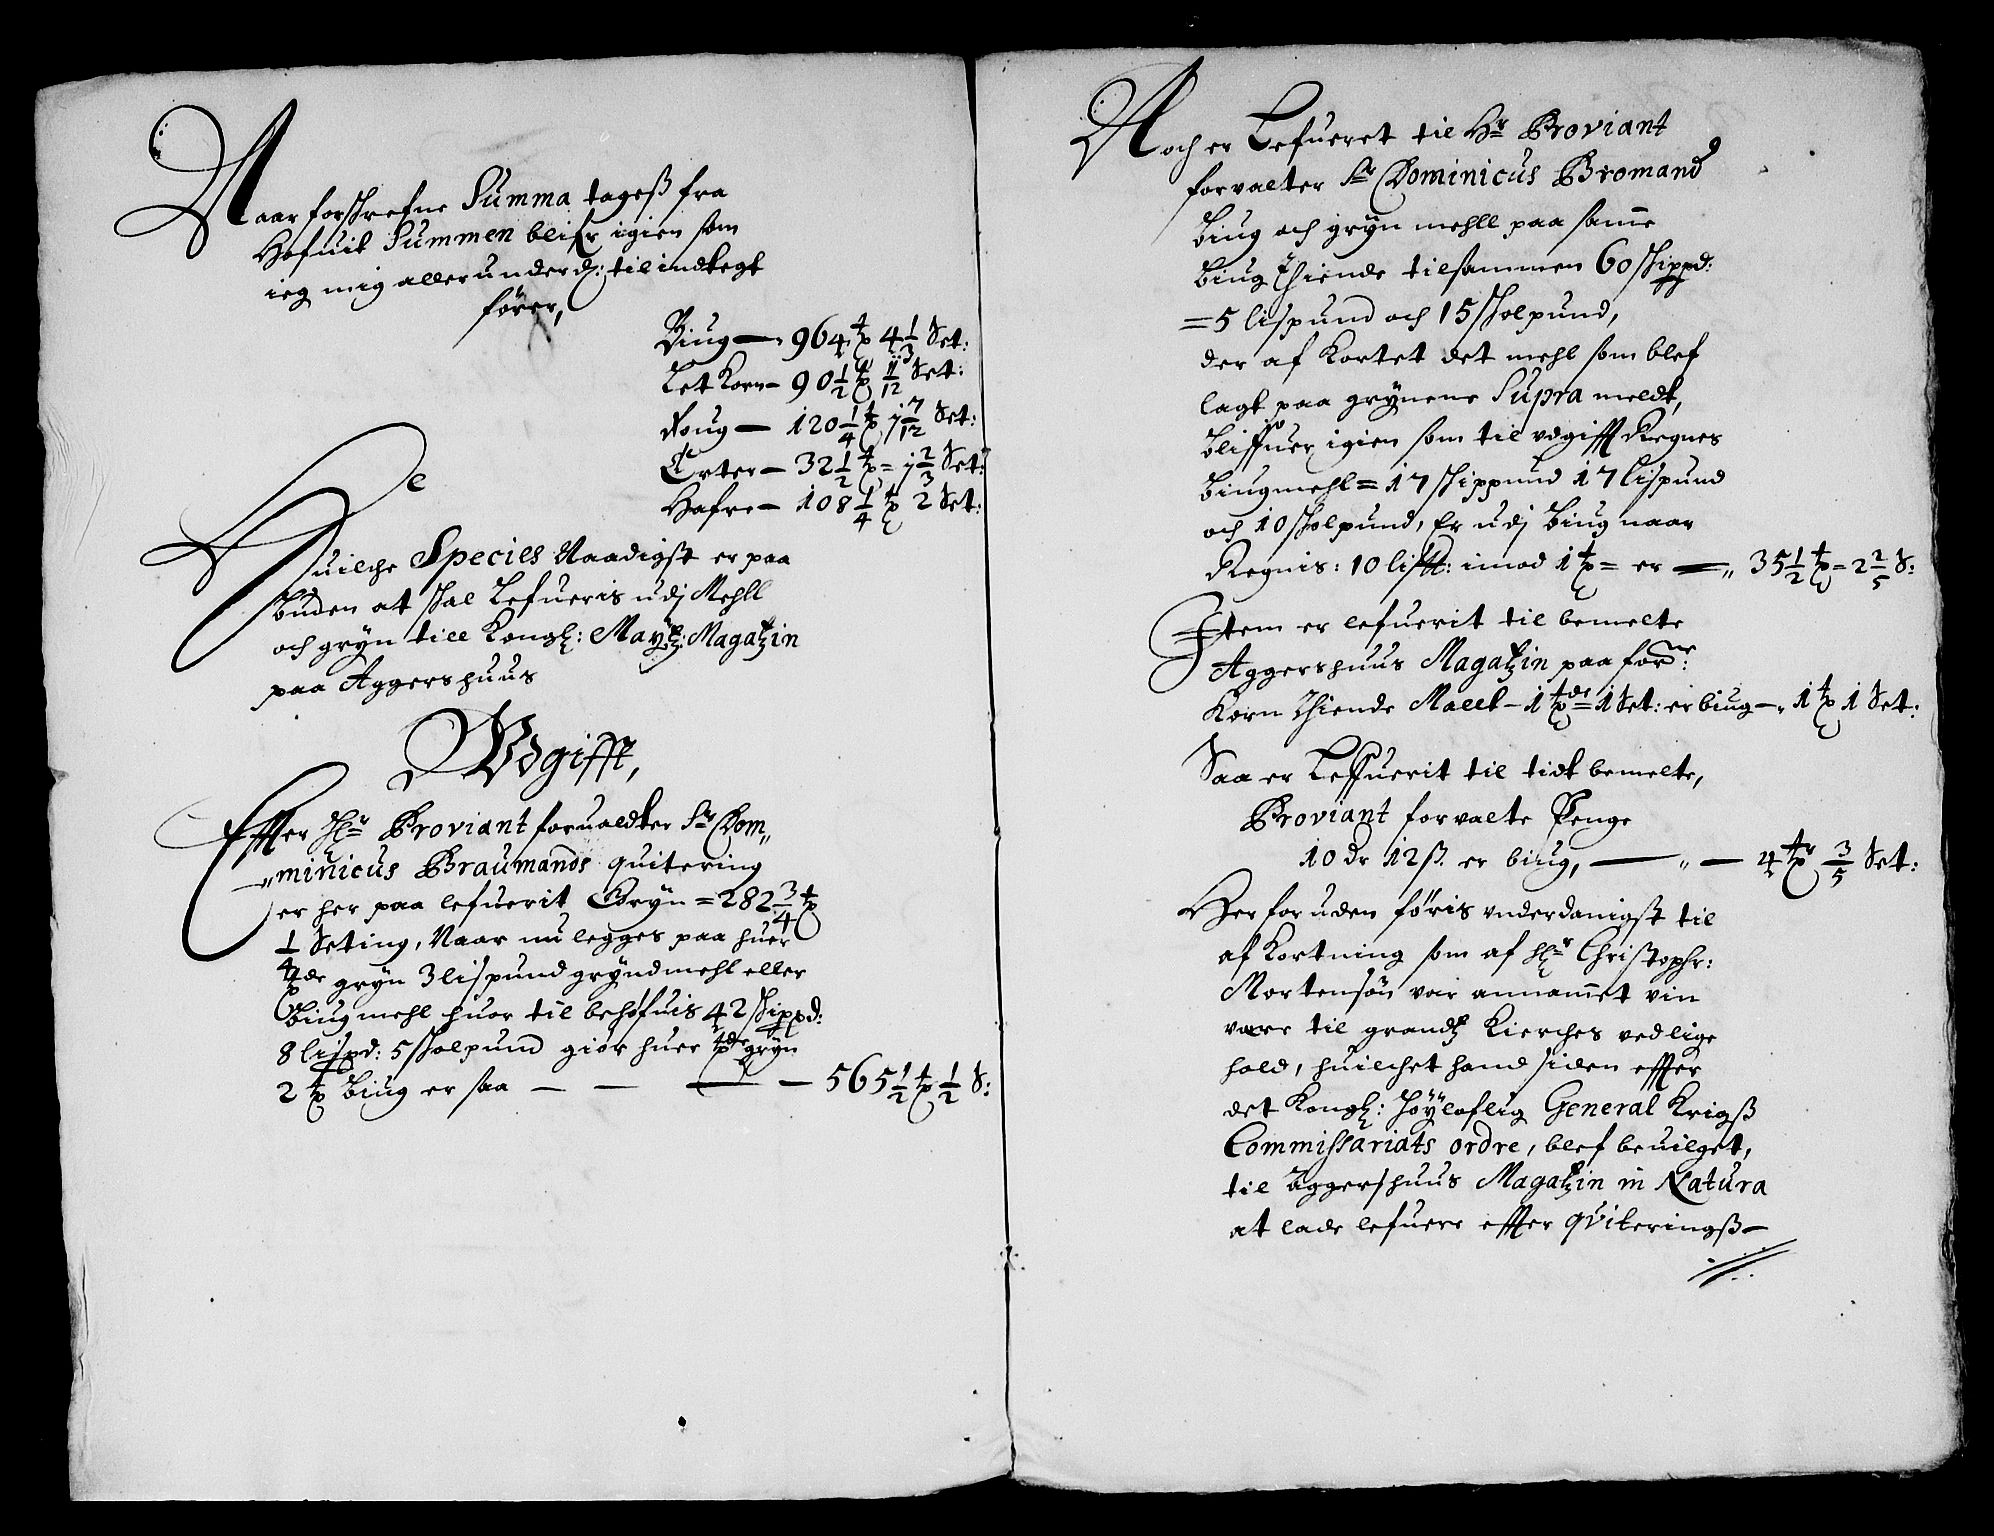 Naar forschrefne Summa tageß fra
Hofuit Summen blifr igien som
ieg mig allerunderd: til indtegt
fører,
Biug — 964 tr 4 1/3 Set:
Let Korn — 90 1/2 tr 11/12 Set:
Roug — 120 1/4 tr 1 7/12 Set:
Erter — 32 1/2 tr = 1 2/3 Set:
Hafre — 108 1/4 tr 2 Set:
Huilche Species Naadigst er paa
buden at skal Lefueris udj Mehll
och gryn till Kongl: Maytz: Magatzin
paa Aggershuus
Vdgifft,
Effter Hr Proviant forualdter Sr Dom„
„minicus Braumands quitering
er her paa lefuerit Gryn = 282 3/4 tr
1/2 Seting, Naar nu legges paa huer
tde gryn 3 lispund gryndmehl eller
Biugmehl huor til behøfuis 42 skippd:
8 lispd: 5 skolpund giør huer tde gryn
2 tr Biug er saa — — — — 565 1/2 tr 1/2 S:
Noch er Lefueret til Hr Proviant
forvalter Sr Dominicus Bromand
Biug och gryn mehll paa samme
biug Thiende tilsammen 60 skippd:
= 5 lispund och 15 skolpund,
der af Kortet det mehl som blef
lagt paa grynene Supra meldt,
bliffuer igien som til vdgifft Regnes
Biugmehl = 17 skippund 17 lispund
och 10 skolpund, Er udj Biug naar
Regnis: 10 lispd: imod 1 tr = er — „ 35 1/2 tr = 2 2/5 S:
Item er lefuerit til bemelte
Aggershuus Magatzin paa forne:
Korn Thiende Maelt — 1 tde = 1 Set: er biug — „ 1 tr 1 Set:
Saa er Leffuerit til tidt bemelte,
Proviant forvalte Penge
10 dr 12 ß. er biug, — „ — 4 tr 3/5 Set:
Her foruden føris vnderdanigst til
af Kortning som af Hr Christophr:
Mortensøn var annammet vin
vare til grandtz Kierches vedlige
hold, huilchet hand siden effter
det Kongl: høyloflig General Krigß
Commissariats ordre, blef beuilget,
til Aggershuus Magatzin in Natura
at lade lefuere effter qviteringß —